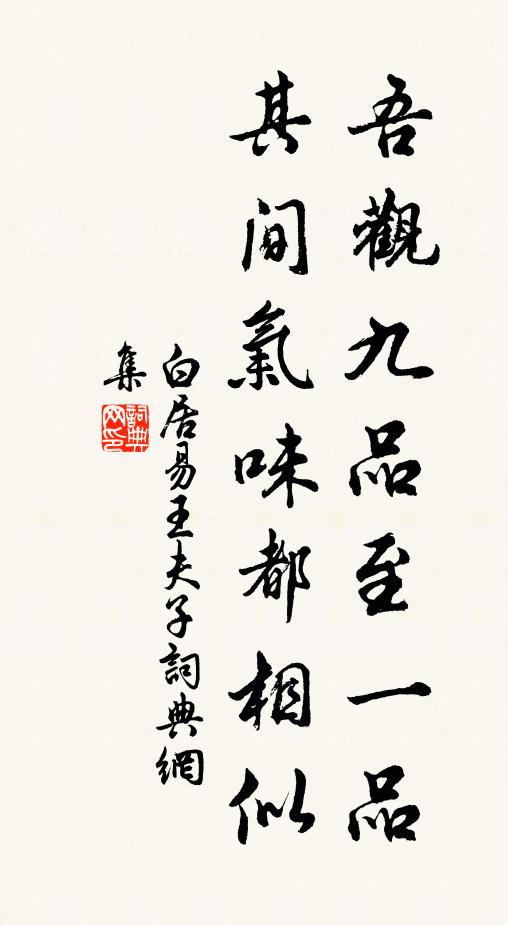 吾觀九品至一品
其間氣味都相似
白居易王夫子詞典網
集
詞典网印